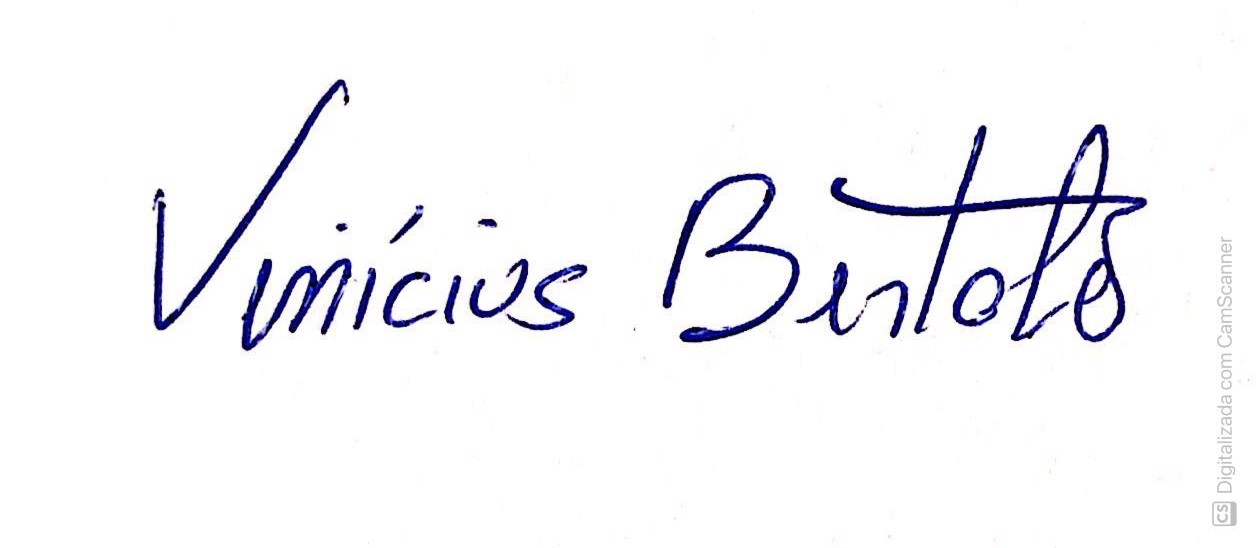 Vinícius Bertolo
Digitalizada com CamScanner
CS